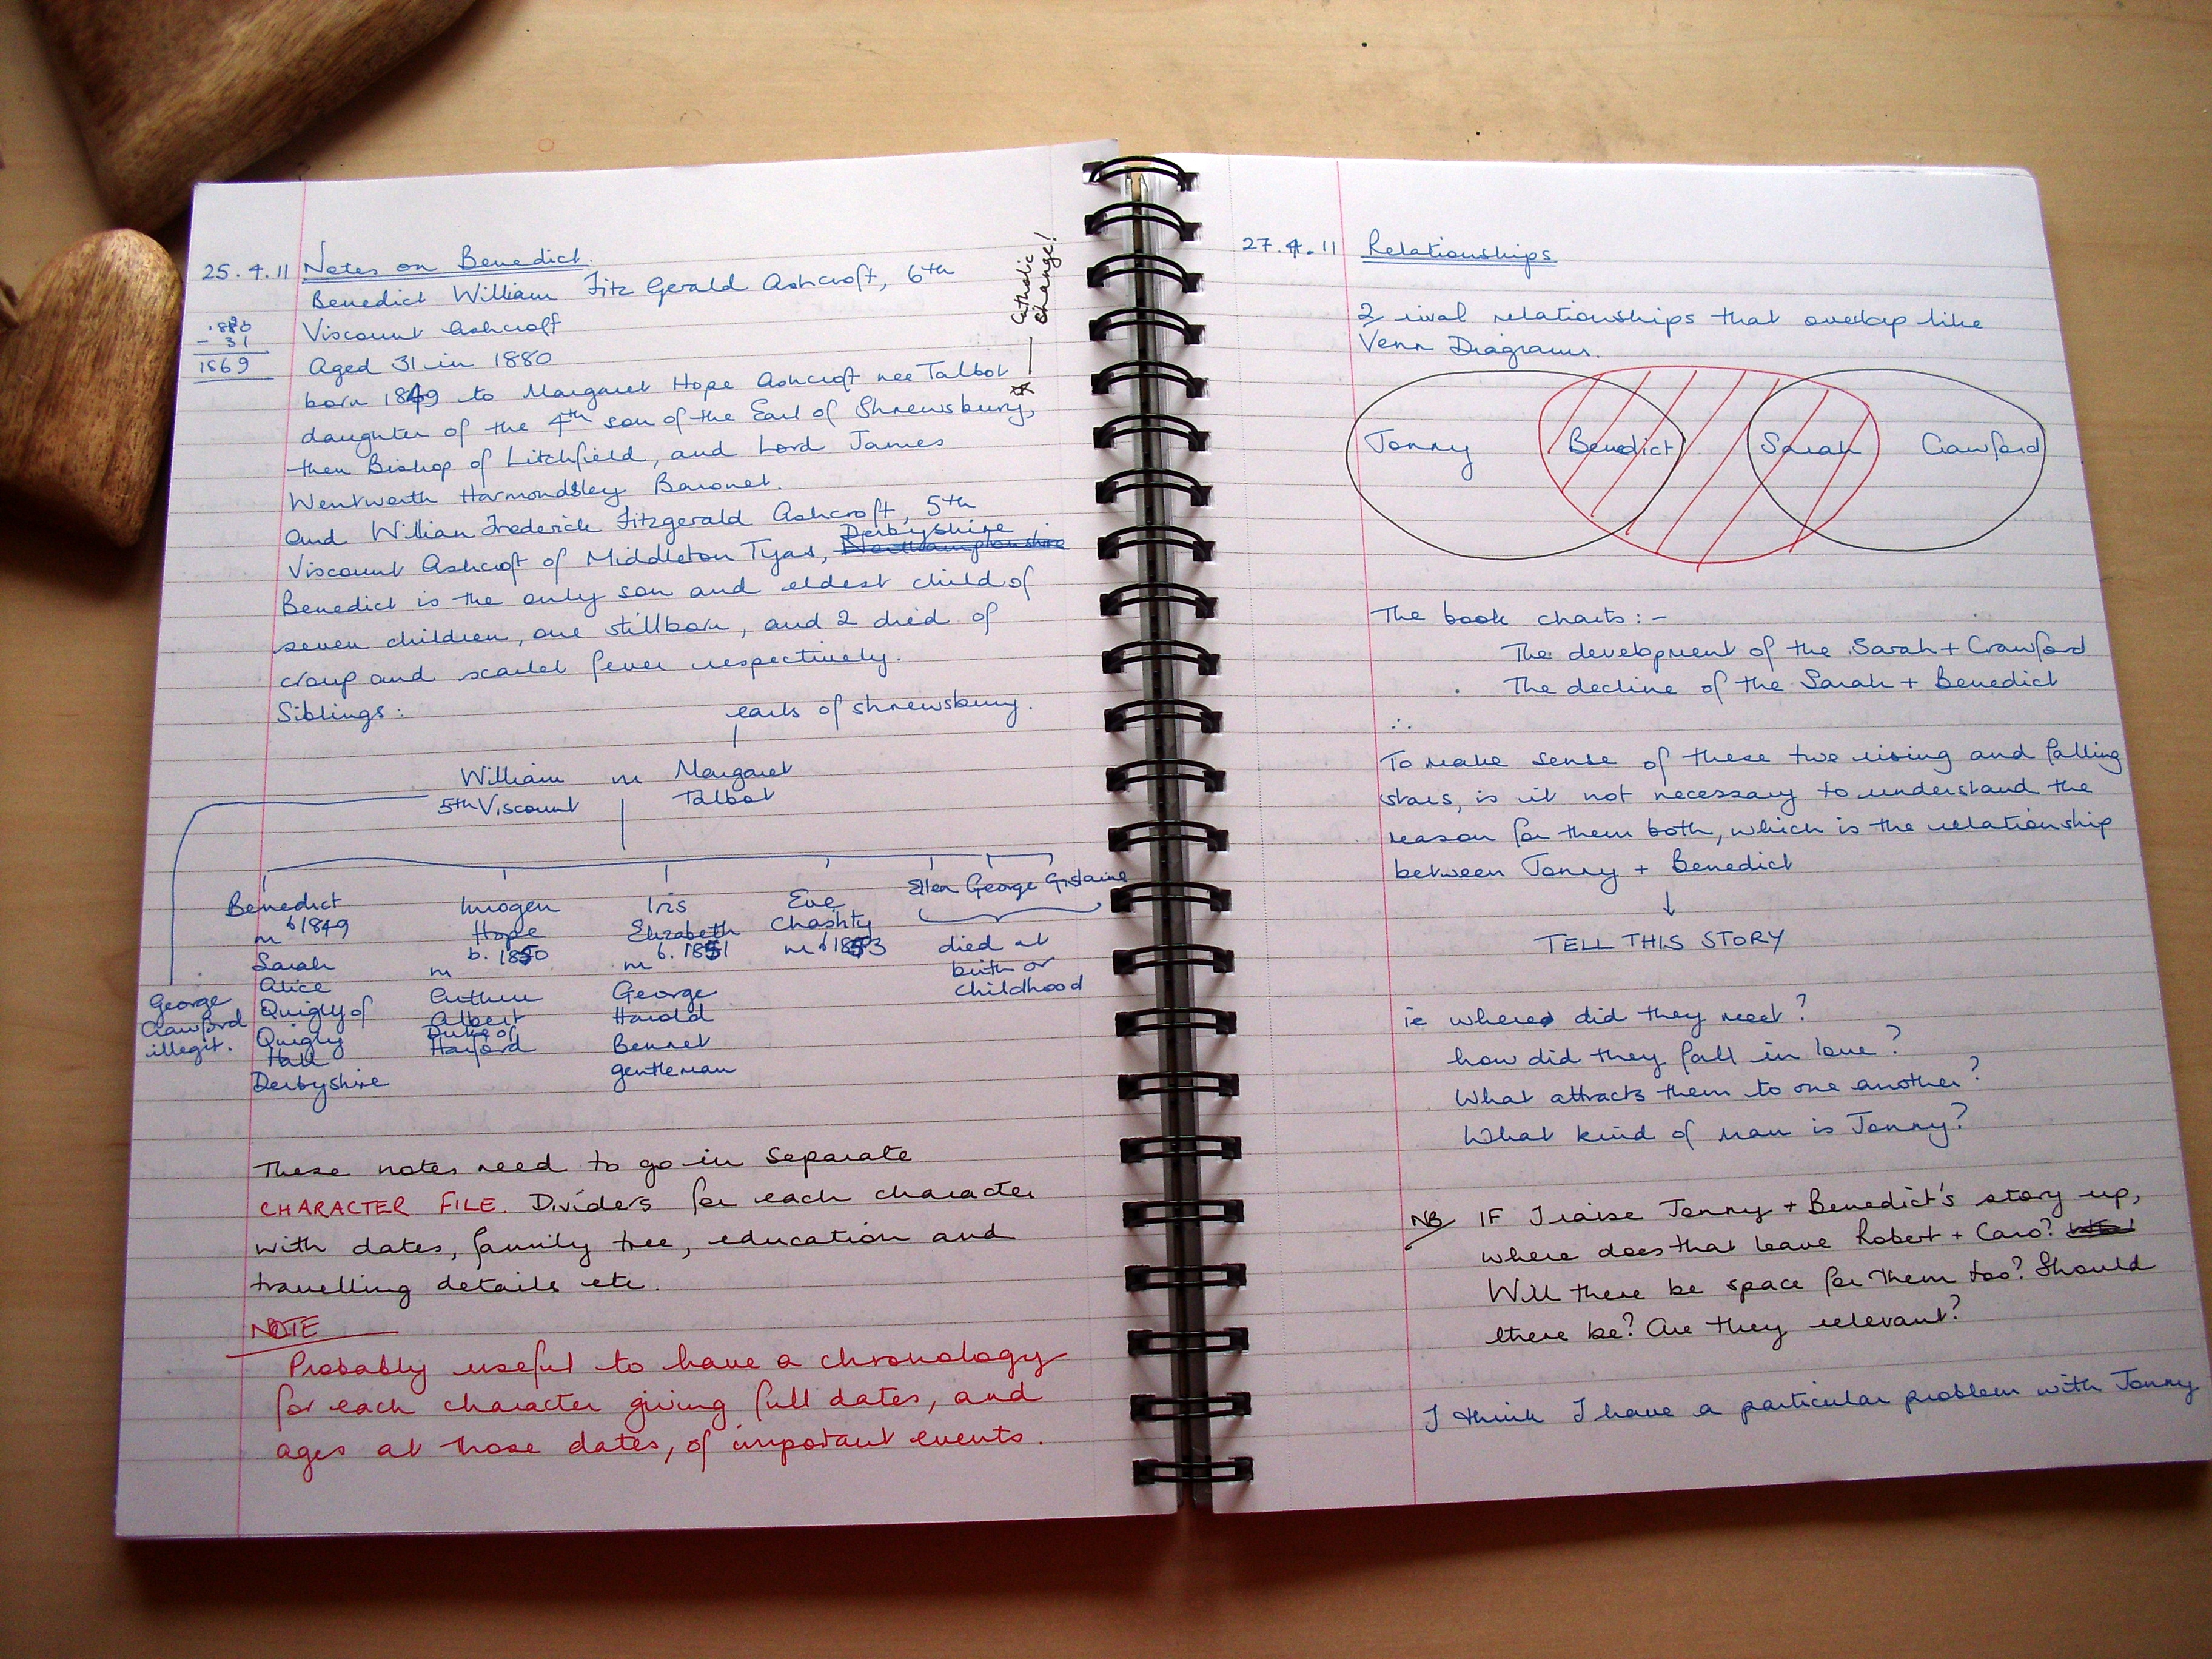 25.4.11 Notes on Benedict.
Benedict William Fitz Gerald Ashcroft, 6th
Viscount Ashcroft
1880
- 31
1869
Aged 31 in 1880
born 1849 to Margaret Hope Ashcroft nee Talbot
daughter of the 4th son of the Earl of Shrewsbury,
then Bishop of Litchfield, and Lord James
Wentworth Harmondsley Baronet.
and William Frederick Fitzgerald Ashcroft, 5th
Derbyshire
Viscount Ashcroft of Middleton Tyas, Northamptonshire
Benedict is the only son and eldest child of
seven children, one stillborn, and 2 died of
croup and scarlet fever respectively.
Catholic
change!
Siblings:
earls of shrewsbury.
William m Margaret
5th Viscount Talbot
Benedict
b 1849
m
Sarah
Alice
Quigly of
Quigly
Hall
Derbyshire
Imogen
Hope
b. 1850
m
Albert
Duke of
Iris
Elizabeth
b. 1851
m
George
Harold
Bennet
gentleman
Eve
Chastity
m b 1853
Ellen George Gislaine
died at
birth or
childhood
George
Crawford
illegit.
These notes need to go in separate
CHARACTER FILE. Dividers for each character
with dates, family tree, education and
travelling details etc.
NOTE
Probably useful to have a chronology
for each character giving full dates, and
ages at those dates, of important events.
27.4.11 Relationships
2 rival relationships that overlap like
Venn Diagrams.
Jonny Benedict Sarah Crawford
The book charts:-
The development of the Sarah + Crawford
The decline of the Sarah + Benedict
∴
To make sense of these two rising and falling
stars, is it not necessary to understand the
reason for them both, which is the relationship
between Jonny + Benedict
↓
TELL THIS STORY
ie where did they meet?
how did they fall in love?
What attracts them to one another?
What kind of man is Jonny?
NB IF I raise Jonny + Benedict's story up,
where does that leave Robert + Caro?
Will there be space for them too? Should
there be? Are they relevant?
I think I have a particular problem with Jonny